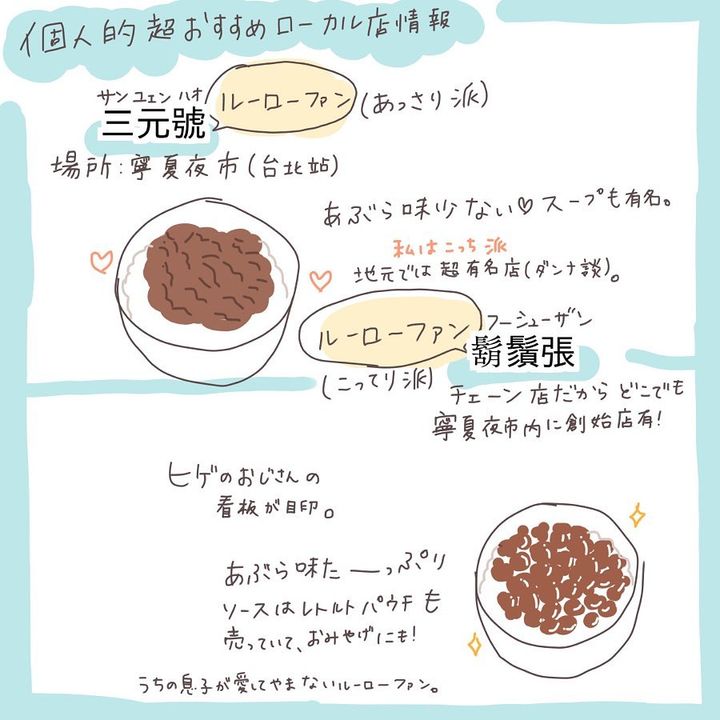 個人的超おすすめローカル店情報
サンユェンハオ
三元號
ルーローファン
(あっさり派)
場所:寧夏夜市(台北站)
あぶら味少ない♡スープも有名。
私はこっち派
地元では超有名店(ダンナ談)。
ルーローファン
(こってり派)
フーシューザン
鬍鬚張
チェーン店だからどこでも
寧夏夜市内に創始店有!
ヒゲのおじさんの
看板が目印。
あぶら味たーっぷり
ソースはレトルトパウチも
売っていて、おみやげにも!
うちの息子が愛してやまないルーローファン。